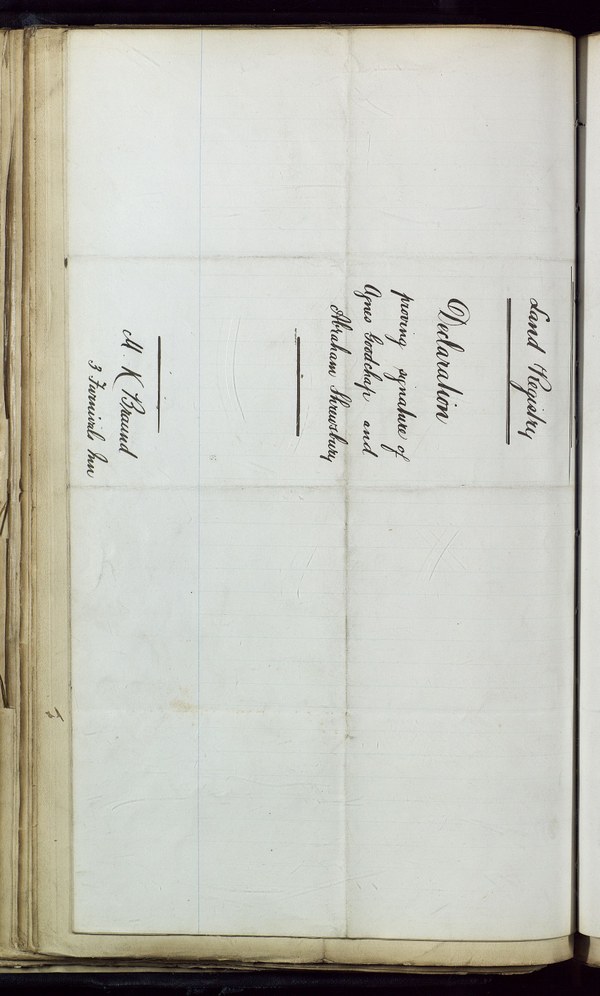 Land Registry
Declaration
proving signature of
Agnes Goodchap and
Abraham Shrewsbury
M. K. Braund
3 Furnivals Inn